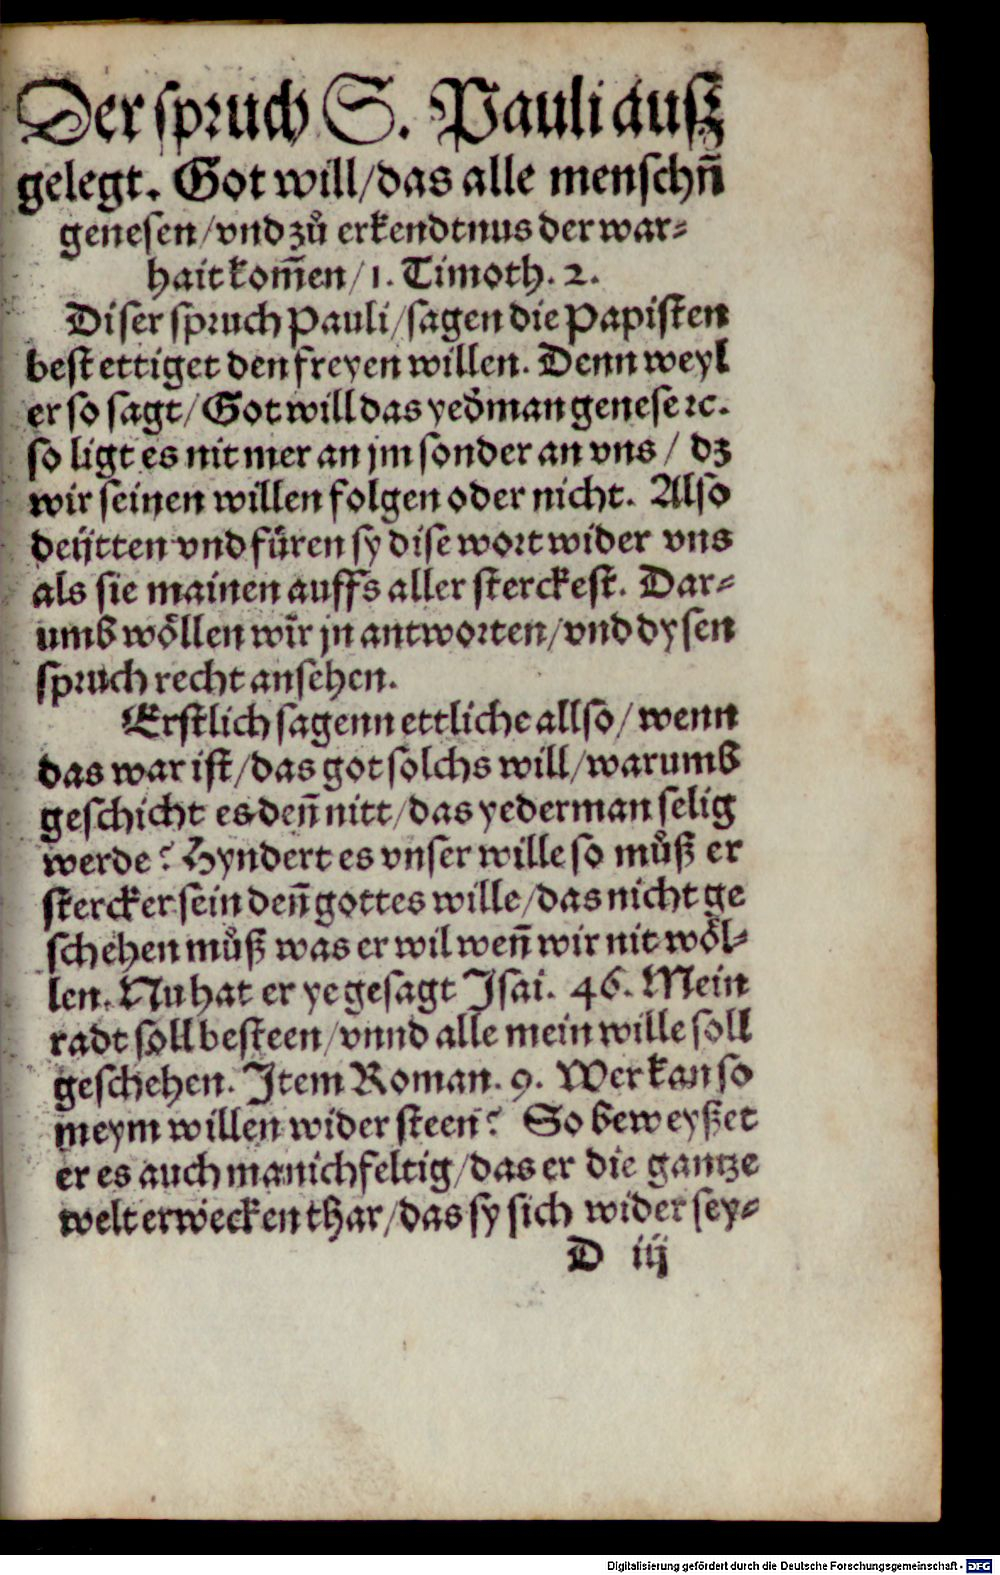 Der spruch S. Pauli ausz
gelegt. Got will/das alle menschñ
genesen/vnd zů erkendtnus der war-
hait kom̃en/1. Timoth. 2.
Diser spruch Pauli/sagen die Papisten
bestettiget den freyen willen. Denn weyl
er so sagt/Got will das yed̃man genese ꝛc.
so ligt es nit mer an jm sonder an vns / dz
wir seinen willen folgen oder nicht. Also
deütten vnd füren sy dise wort wider vns
als sie mainen auffs aller sterckest. Dar-
umb wöllen wir jn antworten/vnd dysen
spruch recht ansehen.
Erstlich sagenn ettliche allso/wenn
das war ist/das got solchs will/warumb
geschicht es den̄ nitt/das yederman selig
werde? Hyndert es vnser wille so můß er
stercker sein den̄ gottes wille/das nicht ge
schehen můß was er wil wen̄ wir nit wöl-
len. Nu hat er ye gesagt Isai. 46. Mein
radt soll besteen/vnnd alle mein wille soll
geschehen. Item Roman. 9. Wer kan so
meym willen wider steen? So beweyßet
er es auch manichfeltig/das er die gantze
welt erwecken thar/das sy sich wider sey-
D iij
Digitalisierung gefördert durch die Deutsche Forschungsgemeinschaft - DFG